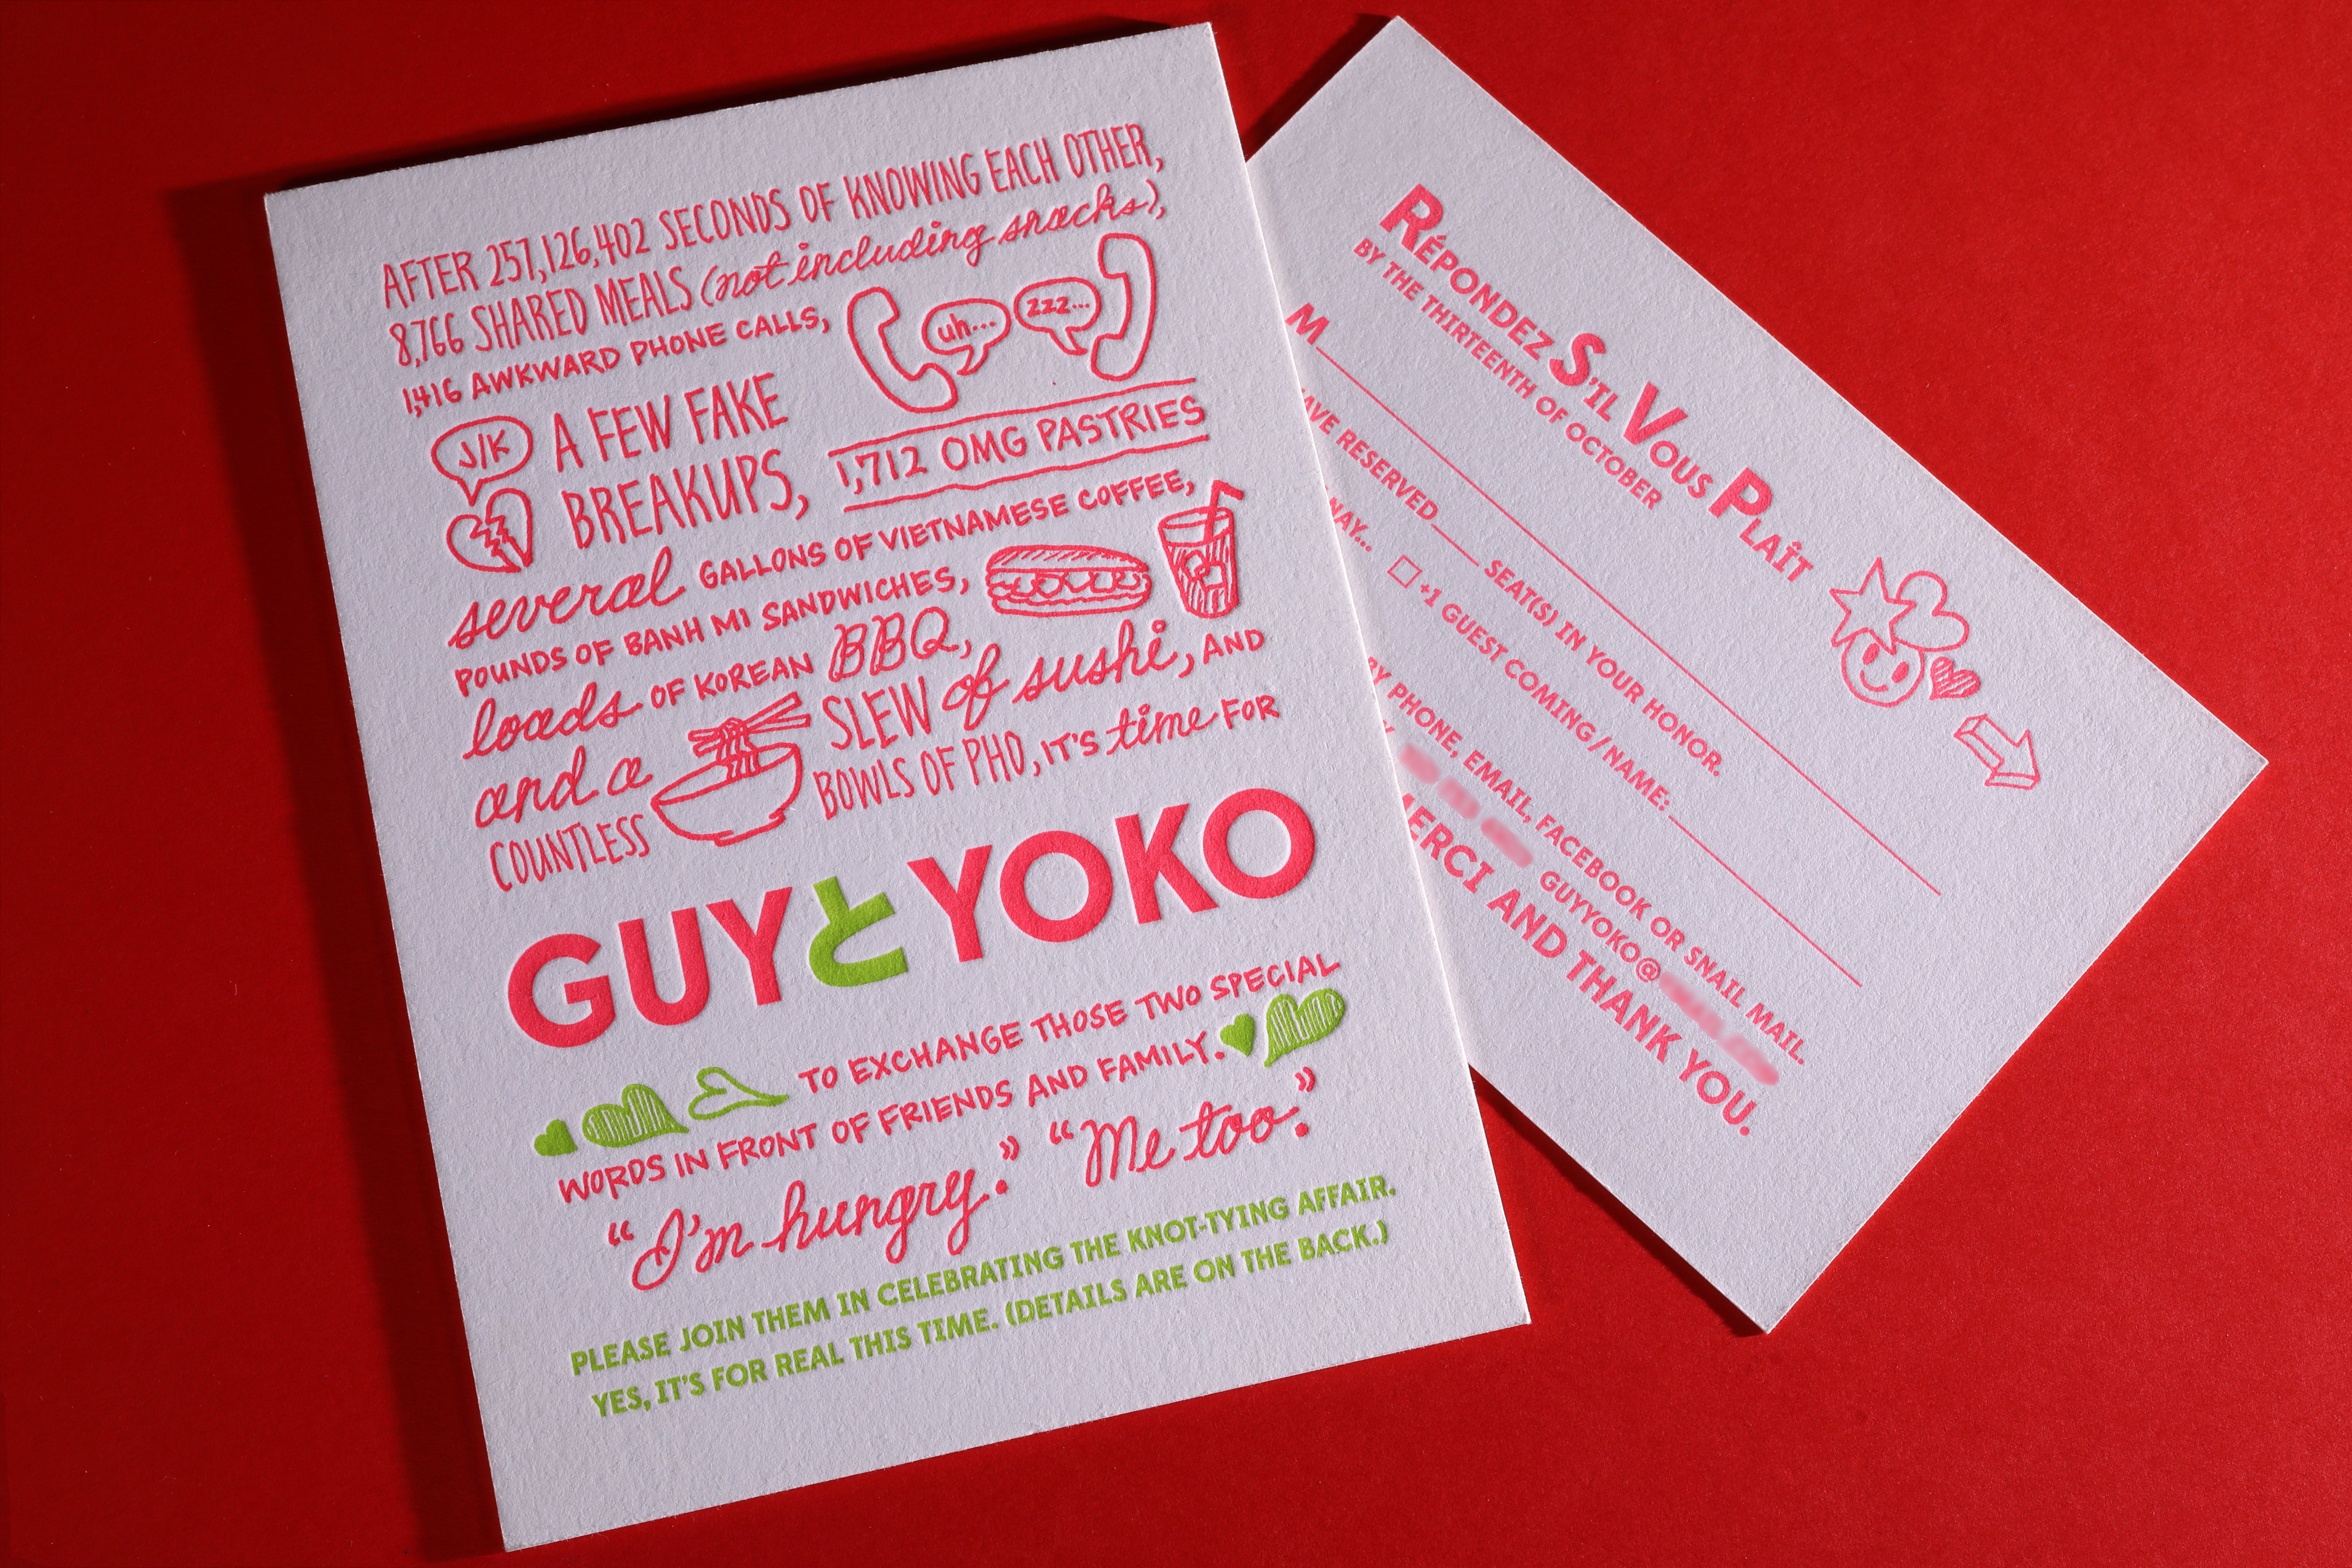 AFTER 257,126,402 SECONDS OF KNOWING EACH OTHER,
8,766 SHARED MEALS (not including snacks),
1,416 AWKWARD PHONE CALLS,
uh...
zzz...
J/K
A FEW FAKE
BREAKUPS,
1,712 OMG PASTRIES
several GALLONS OF VIETNAMESE COFFEE,
POUNDS OF BANH MI SANDWICHES,
loads OF KOREAN BBQ,
and a SLEW of sushi, AND
COUNTLESS BOWLS OF PHO, IT'S time FOR
GUYとYOKO
TO EXCHANGE THOSE TWO SPECIAL
WORDS IN FRONT OF FRIENDS AND FAMILY.
“I'm hungry.” “Me too.”
PLEASE JOIN THEM IN CELEBRATING THE KNOT-TYING AFFAIR.
YES, IT'S FOR REAL THIS TIME. (DETAILS ARE ON THE BACK.)
RÉPONDEZ S'IL VOUS PLAÎT
BY THE THIRTEENTH OF OCTOBER
M
RESERVED SEAT(S) IN YOUR HONOR.
+1 GUEST COMING / NAME:
BY PHONE, EMAIL, FACEBOOK OR SNAIL MAIL.
GUYYOKO@
MERCI AND THANK YOU.